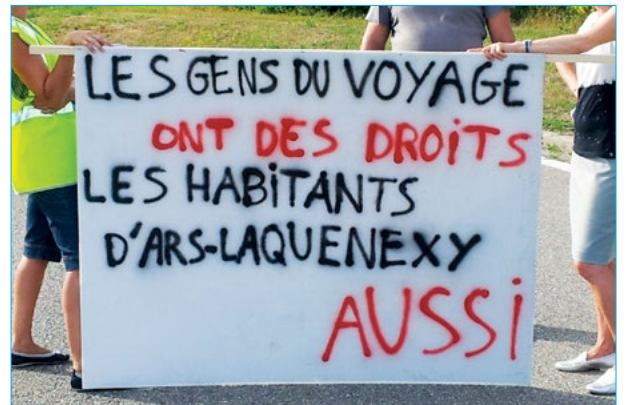 LES GENS DU VOYAGE
ONT DES DROiTS
LES HABiTANTS
D'ARS-LAQUENEXY
AUSSi